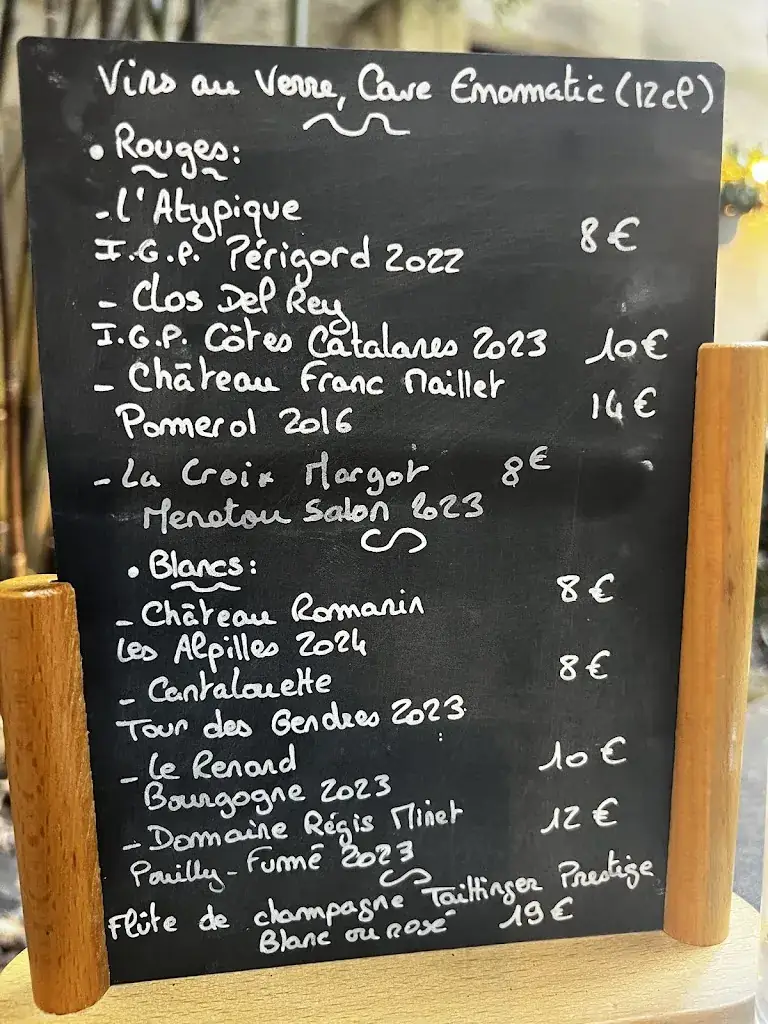 Vins au Verre, Cave Enomatic (12cl)
• Rouges:
- l'Atypique
I.G.P. Périgord 2022 8€
- Clos Del Rey
I.G.P. Côtes Catalanes 2023 10€
- Château Franc Maillet 14€
Pomerol 2016
- La Croix Margot 8€
Menetou Salon 2023
• Blancs:
- Château Romanin 8€
Les Alpilles 2024
- Cantalouette 8€
Tour des Gendres 2023
- Le Renard 10€
Bourgogne 2023
- Domaine Régis Minet 12€
Pouilly-Fumé 2023
Flûte de champagne Taittinger Prestige
Blanc ou rosé 19€